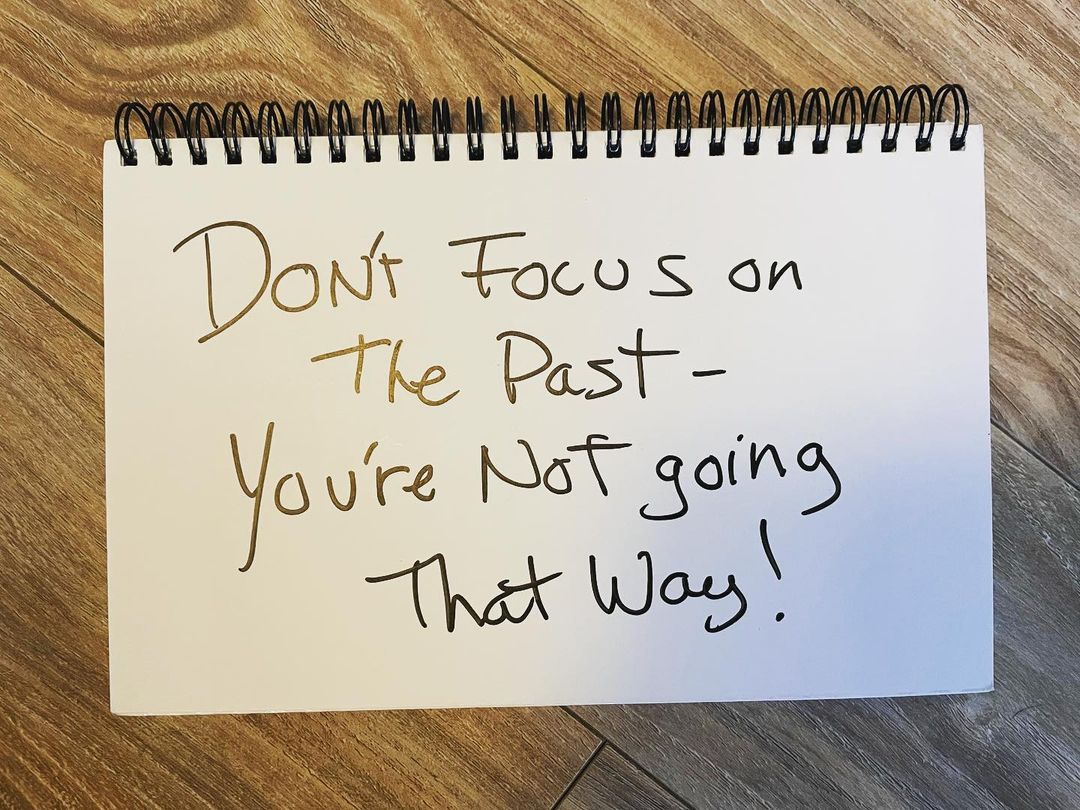 Don't Focus on
The Past -
You're Not going
That Way!